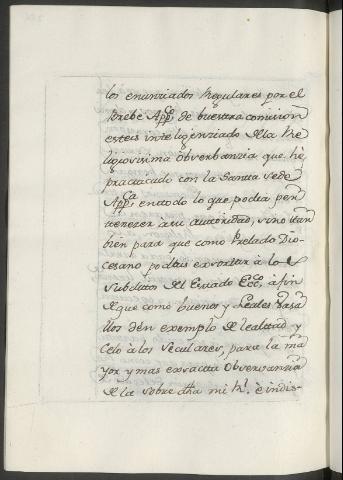 los enunziados Regulares por el
Brebe App.co de buestra comision
esteis inteligenziado de la Re
ligiosisima observanzia que he
practacado con la Santa sede
App.ca en todo lo que podia per
tenezer à su autoridad, sino tam
bien para que como Prelado Dio-
cesano podais exsortar à los
Subditos del Estado Ecc.co, à fin
de que como buenos y Leales Vasa
llos dèn exemplo de lealtad y
Celo à los Seculares, para la ma
yor y mas exsacta Observanzia
de la sobre dha mi R.l è indis-